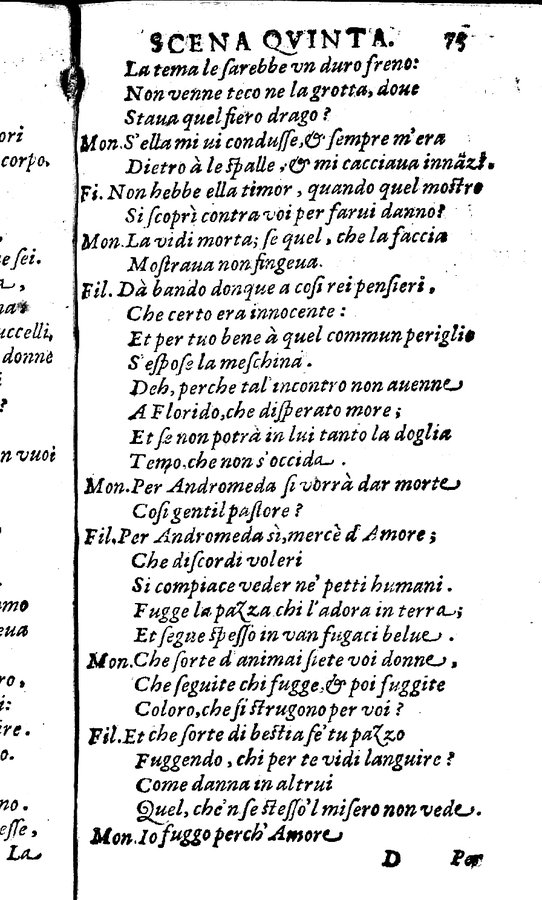 ori
corpo.
e sei.
uccelli,
donne
?
n vuoi
mo
eua
ro,
i:
ire.
o.
no.
esse,
La
SCENA QVINTA. 75
La tema le sarebbe vn duro freno:
Non venne teco ne la grotta, doue
Staua quel fiero drago?
Mon. S'ella mi ui condusse, & sempre m'era
Dietro à le spalle, & mi cacciaua innãzi.
Fi. Non hebbe ella timor, quando quel mostro
Si scoprì contra voi per farui danno?
Mon. La vidi morta; se quel, che la faccia
Mostraua non fingeua.
Fil. Dà bando donque a cosi rei pensieri,
Che certo era innocente:
Et per tuo bene à quel commun periglio
S'espose la meschina.
Deh, perche tal'incontro non auenne
A Florido, che disperato more;
Et se non potrà in lui tanto la doglia
Temo, che non s'occida.
Mon. Per Andromeda si vorrà dar morte
Cosi gentil pastore?
Fil. Per Andromeda sì, mercè d'Amore;
Che discordi voleri
Si compiace veder ne' petti humani.
Fugge la pazza chi l'adora in terra;
Et segue spesso in van fugaci belue.
Mon. Che sorte d'animai siete voi donne,
Che seguite chi fugge, & poi fuggite
Coloro, che si strugono per voi?
Fil. Et che sorte di bestia se' tu pazzo
Fuggendo, chi per te vidi languire?
Come danna in altrui
Quel, che 'n se stesso 'l misero non vede.
Mon. Io fuggo perch' Amore
D Per